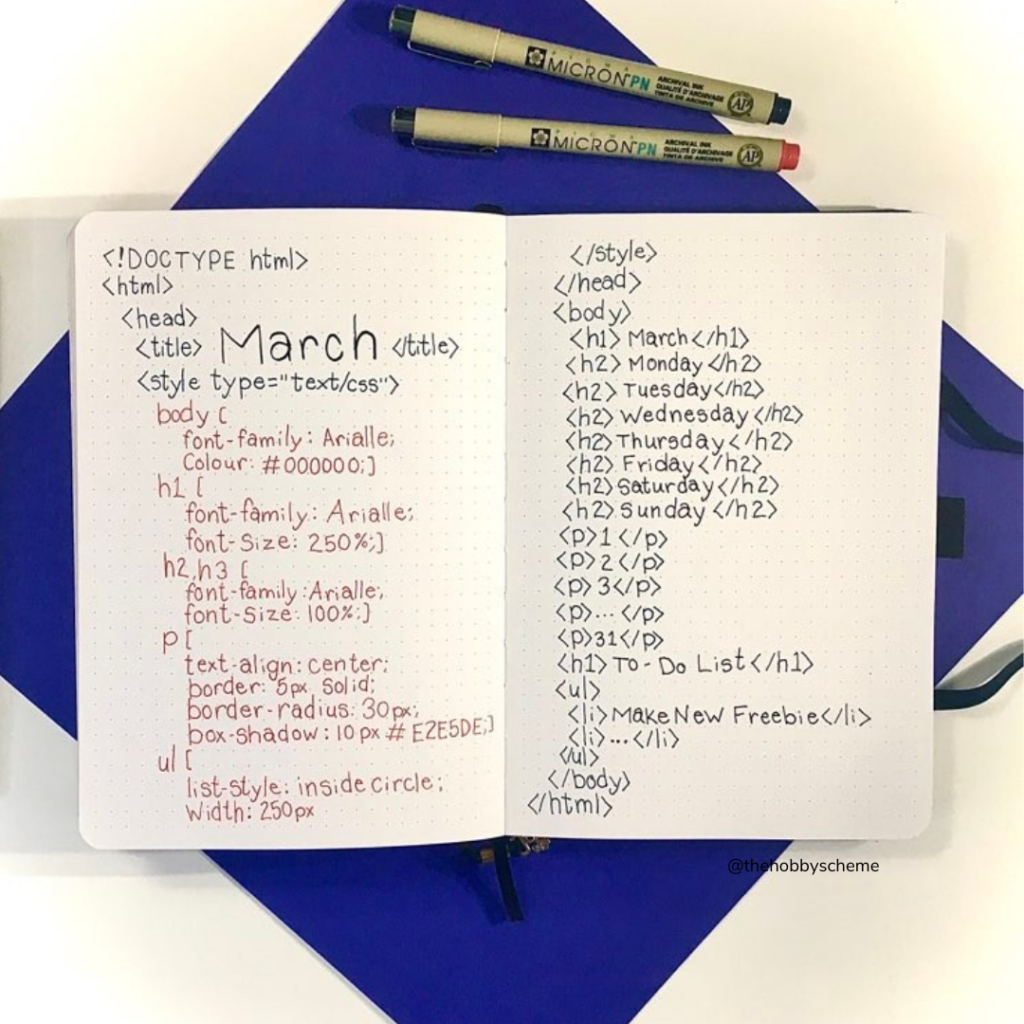 PIGMA
MICRON PN
ARCHIVAL INK
QUALITÉ D'ARCHIVAGE
TINTA DE ARCHIVE
AP
PIGMA
MICRON PN
ARCHIVAL INK
QUALITÉ D'ARCHIVAGE
TINTA DE ARCHIVE
AP
<!DOCTYPE html>
<html>
<head>
<title> March </title>
<style type="text/css">
body [
font-family: Arialle;
Colour: #000000;]
h1 [
font-family: Arialle;
font-Size: 250%;]
h2,h3 [
font-family:Arialle,
font-Size: 100%;]
p[
text-align: center;
border: 5px Solid;
border-radius: 30px;
box-shadow: 10px #E2E5DE;]
ul [
list-style: inside circle;
Width: 250px
</style>
</head>
<body>
<h1> March</h1>
<h2> Monday </h2>
<h2> Tuesday</h2>
<h2> Wednesday </h2>
<h2> Thursday </h2>
<h2> Friday </h2>
<h2> Saturday </h2>
<h2> Sunday </h2>
<p>1 </p>
<p> 2 </p>
<p> 3</p>
<p>... </p>
<p>31</p>
<h1> To-Do List</h1>
<ul>
<li> Make New Freebie</li>
<li>...</li>
</ul>
</body>
</html>
@thehobbyscheme